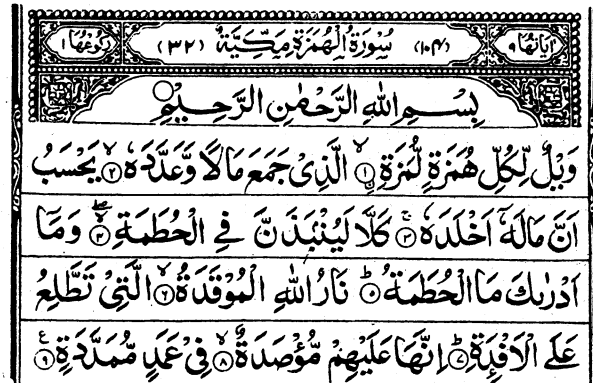 اٰیَاتُهَا ٩ (١٠٤) سُوْرَةُ الْهُمَزَةِ مَكِّيَّةٌ (٣٢) رُكُوْعُهَا ١
بِسْمِ اللّٰهِ الرَّحْمٰنِ الرَّحِيْمِ
وَيْلٌ لِّكُلِّ هُمَزَةٍ لُّمَزَةِۙ ۝١ اۨلَّذِىْ جَمَعَ مَالًا وَّعَدَّدَهٗۙ ۝٢ يَحْسَبُ
اَنَّ مَالَهٗۤ اَخْلَدَهٗۚ ۝٣ كَلَّا لَيُنْۢبَذَنَّ فِى الْحُطَمَةِۖ ۝٤ وَمَاۤ
اَدْرٰىكَ مَا الْحُطَمَةُؕ ۝٥ نَارُ اللّٰهِ الْمُوْقَدَةُۙ ۝٦ الَّتِىْ تَطَّلِعُ
عَلَى الْاَفْـِٕدَةِؕ ۝٧ اِنَّهَا عَلَيْهِمْ مُّؤْصَدَةٌۙ ۝٨ فِىْ عَمَدٍ مُّمَدَّدَةٍ ۝٩ ع